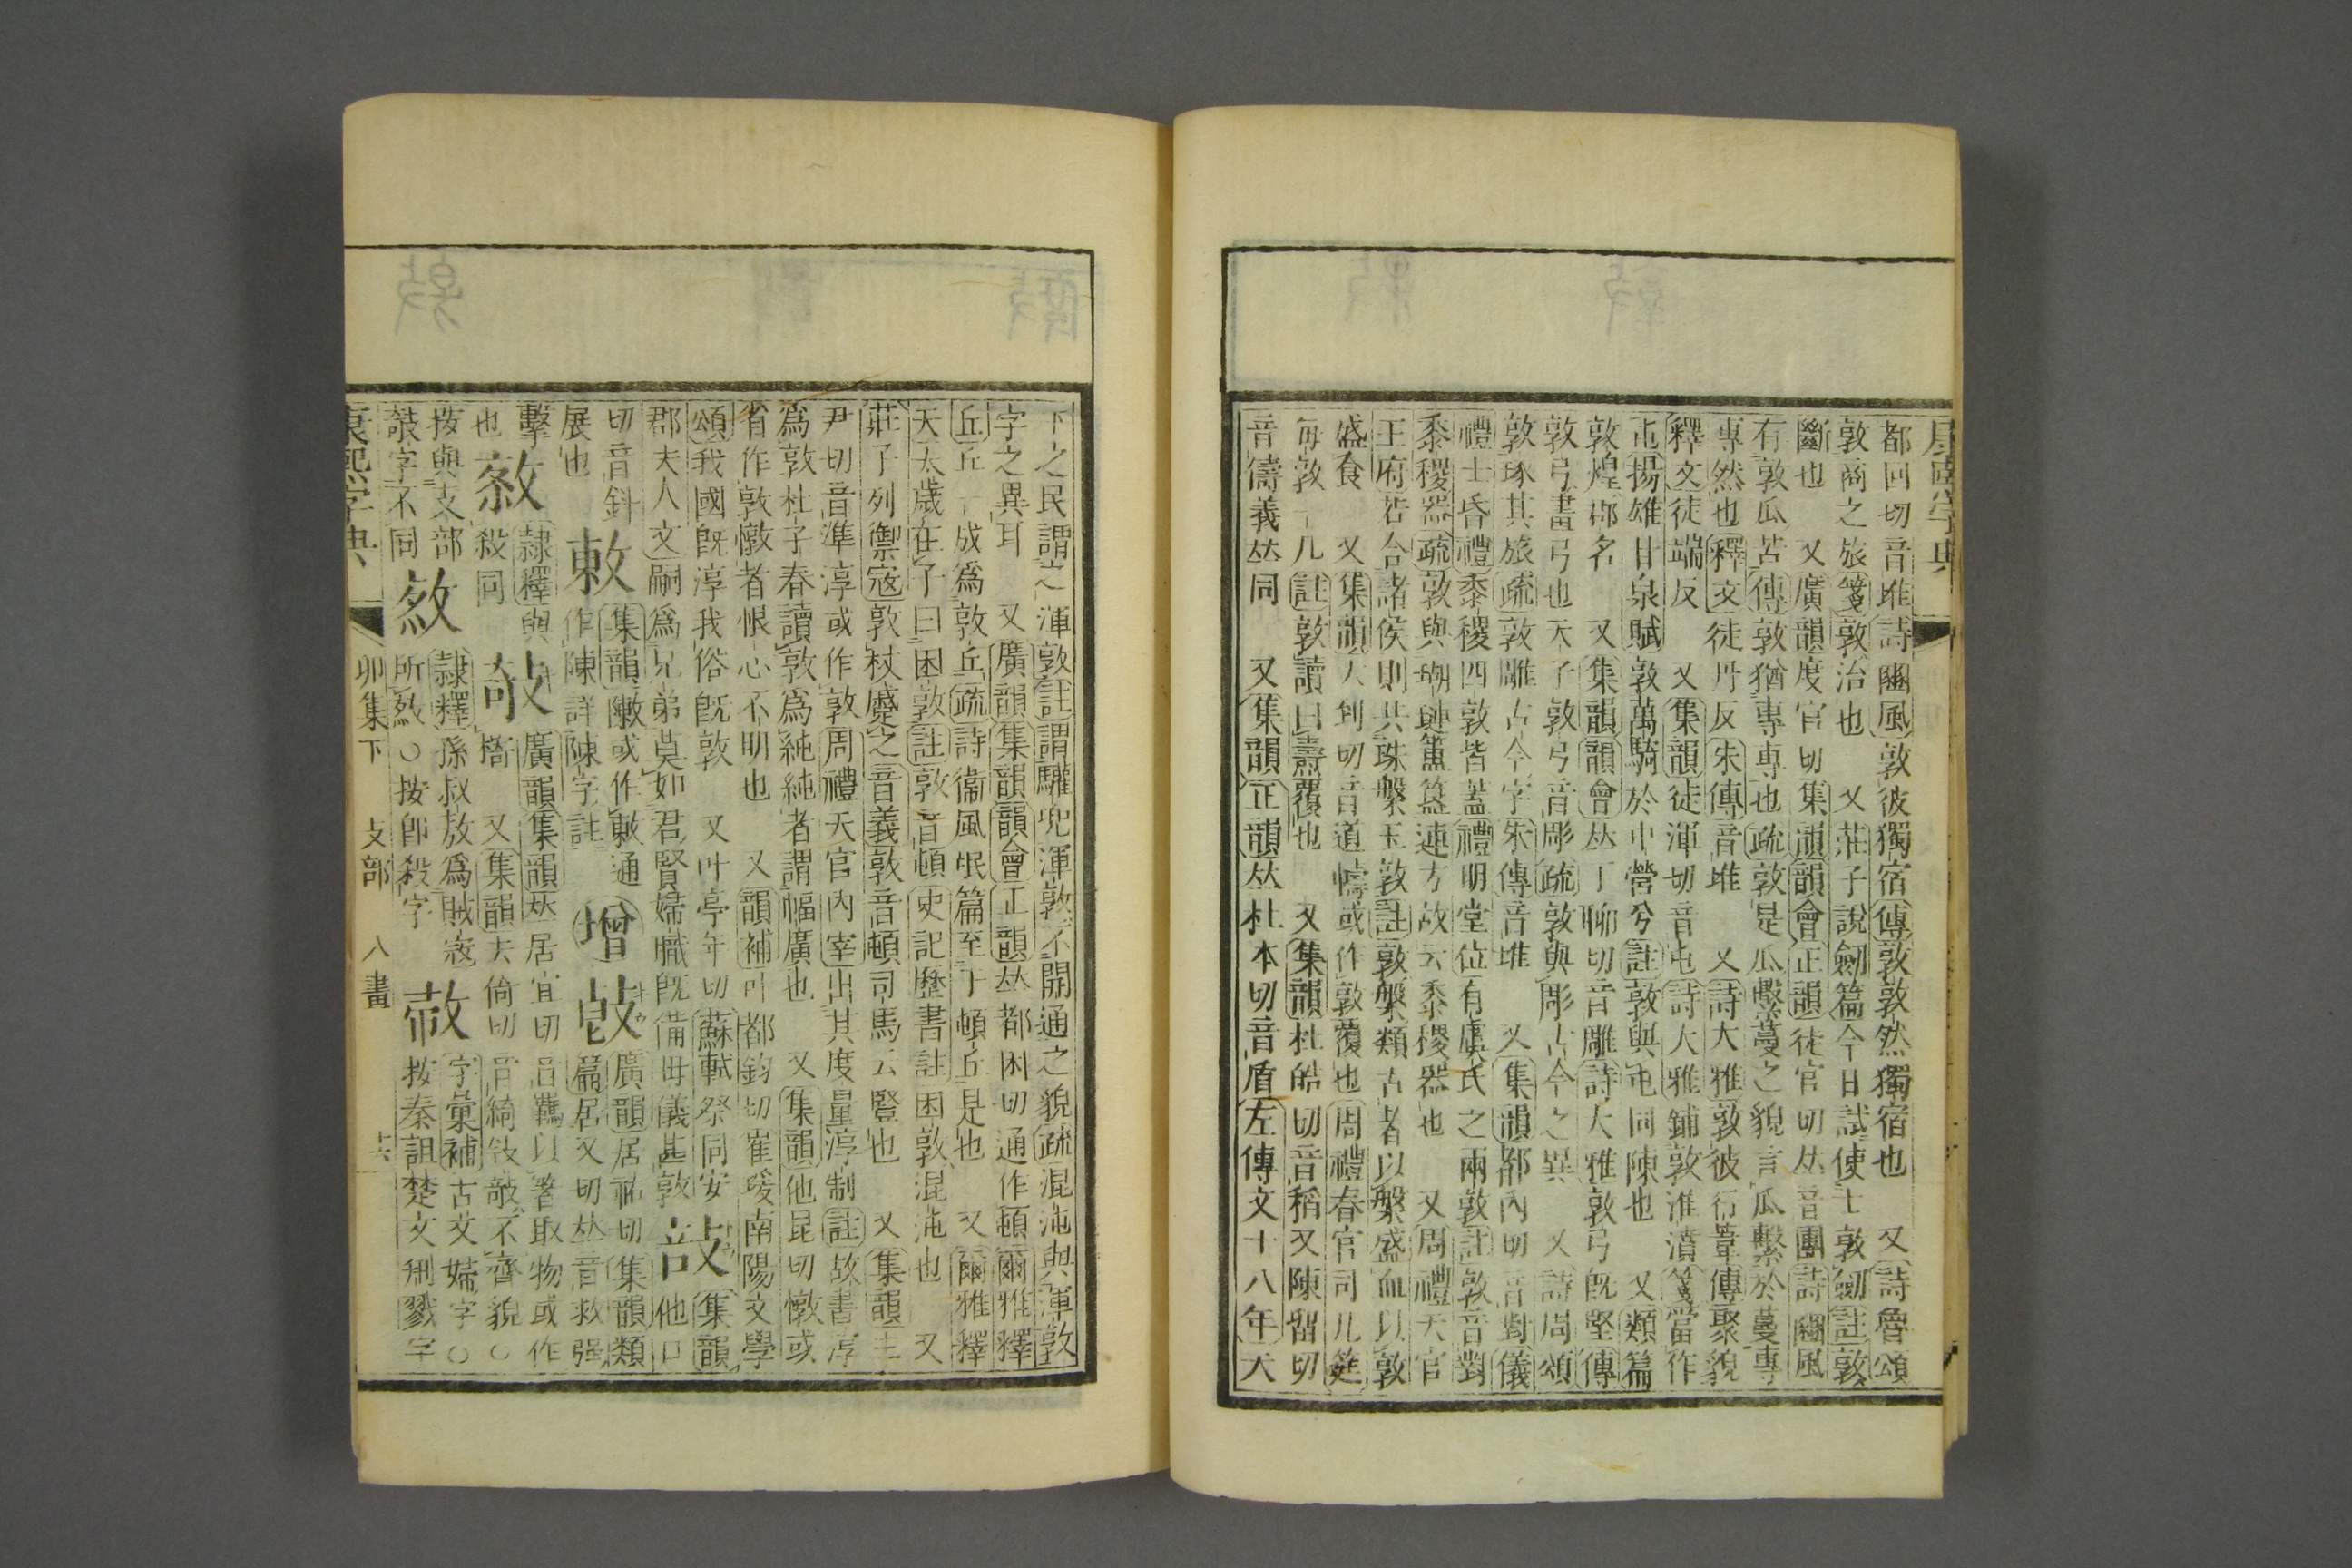 康熙字典
都回切音堆詩豳風敦彼獨宿傳敦敦然獨宿也 又詩魯頌
敦商之旅箋敦治也 又莊子說劒篇今日試使士敦劒註敦
斷也 又廣韻度官切集韻韻會正韻徒官切𠀤音團詩豳風
有敦瓜苦傳敦猶專專也疏敦是瓜繫蔓之貌言瓜繫於蔓專
專然也釋文徒丹反朱傳音堆 又詩大雅敦彼行葦傳聚貌
釋文徒端反 又集韻徒渾切音屯詩大雅鋪敦淮濆箋當作
屯揚雄甘泉賦敦萬騎於中營兮註敦與屯同陳也 又類篇
敦煌郡名 又集韻韻會𠀤丁聊切音雕詩大雅敦弓旣堅傳
敦弓畫弓也天子敦弓音彫疏敦與彫古今之異 又詩周頌
敦琢其旅疏敦雕古今字朱傳音堆 又集韻都內切音對儀
禮士昏禮黍稷四敦皆蓋禮明堂位有虞氏之兩敦註敦音對
黍稷器疏敦與瑚璉簠簋連方故云黍稷器也 又周禮天官
王府若合諸侯則共珠槃玉敦註敦槃類古者以槃盛血以敦
盛食 又集韻大到切音道幬或作敦覆也周禮春官司几筵
每敦一几註敦讀曰燾覆也 又集韻杜皓切音稻又陳留切
音儔義𠀤同 又集韻正韻𠀤杜本切音盾左傳文十八年天
下之民謂之渾敦註謂驩兜渾敦不開通之貌疏混沌與渾敦
字之異耳 又廣韻集韻韻會正韻𠀤都困切通作頓爾雅釋
丘丘一成爲敦丘疏詩衞風氓篇至于頓丘是也 又爾雅釋
天太歲在子曰困敦註敦音頓史記歷書註困敦混沌也 又
莊子列禦寇敦杖蹙之音義敦音頓司馬云豎也 又集韻主
尹切音準淳或作敦周禮天官內宰出其度量淳制註故書淳
爲敦杜子春讀敦爲純純者謂幅廣也 又集韻他昆切憞或
省作敦憞者恨心不明也 又韻補叶都鈞切崔瑗南陽文學
頌我國旣淳我俗旣敦 又叶亭年切蘇軾祭同安
郡夫人文嗣爲兄弟莫如君賢婦職旣備毋儀甚敦 㪗 集韻他口
切音鈄 敕 集韻敶或作敕通作陳詳陳字註
展也 增 㪕 廣韻居祐切集韻類篇居又切𠀤音救強
擊也 㪫 隷釋與殺同 攲 廣韻集韻𠀤居宜切音羈以箸取物或作
𣪊 又集韻去倚切音綺攲㪏不齊貌○
按與支部攲字不同 𢾭 隷釋孫叔敖爲賊寇所𢾭○按卽殺字
字彙補古文嫦字○按秦詛楚文刑戮字
康熙字典
卯集下 攴部 八畫